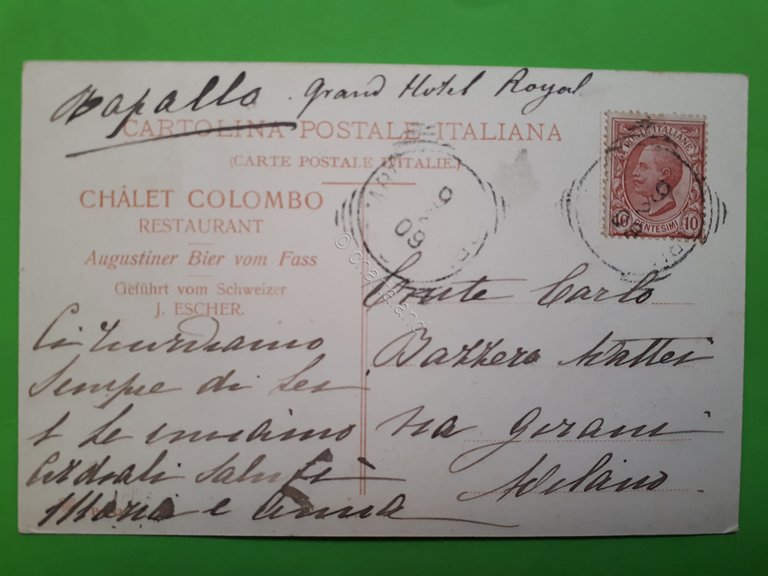 Rapallo. Grand Hotel Royal
CARTOLINA POSTALE ITALIANA
(CARTE POSTALE D'ITALIE.)
CHÂLET COLOMBO
RESTAURANT
Augustiner Bier vom Fass
Geführt vom Schweizer
J. ESCHER.
Ci ricordiamo
sempre di Lei
e Le inviamo
Cordiali saluti
Maria e Anna
POSTE ITALIANE
10 CENTESIMI 10
09
Conte Carlo
Bazzero Mattei
via Gerani
Milano